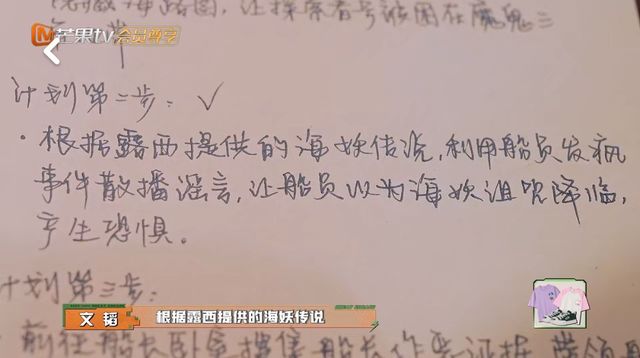 海路图，让探索者号被困在魔鬼三
芒果tv会员尊享
计划第二步：✓
·根据露西提供的海妖传说，利用船员发疯
事件散播谣言，让船员以为海妖诅咒降临，
产生恐惧。
计划第三步：
文韬
根据露西提供的海妖传说
前往船长卧室搜集船长作恶证据，带领